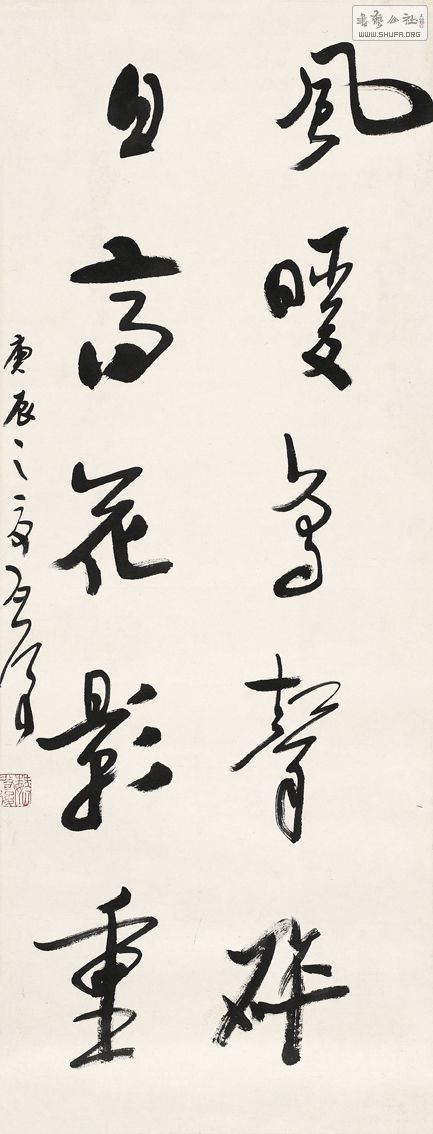 書藝公社
WWW.SHUFA.ORG
風暖鳥聲碎
日高花影重
庚辰之夏